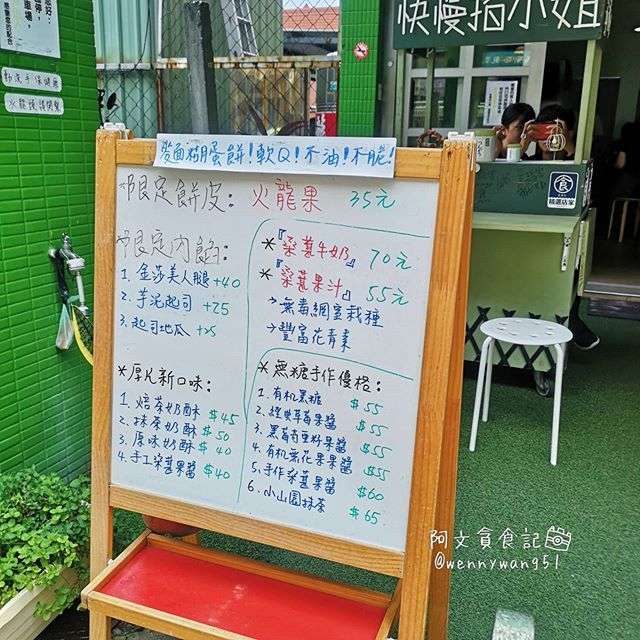 快慢指小姐
精選店家
粉面糊蛋餅!軟Q!不油!不膩!
*限定餅皮: 火龍果 35元
*限定內餡:
1. 金莎美人腿 +40
2. 芋泥起司 +25
3. 起司地瓜 +25
*『桑葚牛奶』 70元
*『桑葚果汁』 55元
→無毒網室栽種
→豐富花青素
*厚片新口味:
1. 焙茶奶酥 $45
2. 抹茶奶酥 $50
3. 原味奶酥 $40
4. 手工桑葚果醬 $40
*無糖手作優格:
1. 有机黑糖 $55
2. 經典草莓果醬 $55
3. 黑莓香草籽果醬 $55
4. 有机無花果果醬 $55
5. 手作桑葚果醬 $60
6. 小山園抹茶 $65
阿文貪食記
@wennywang51